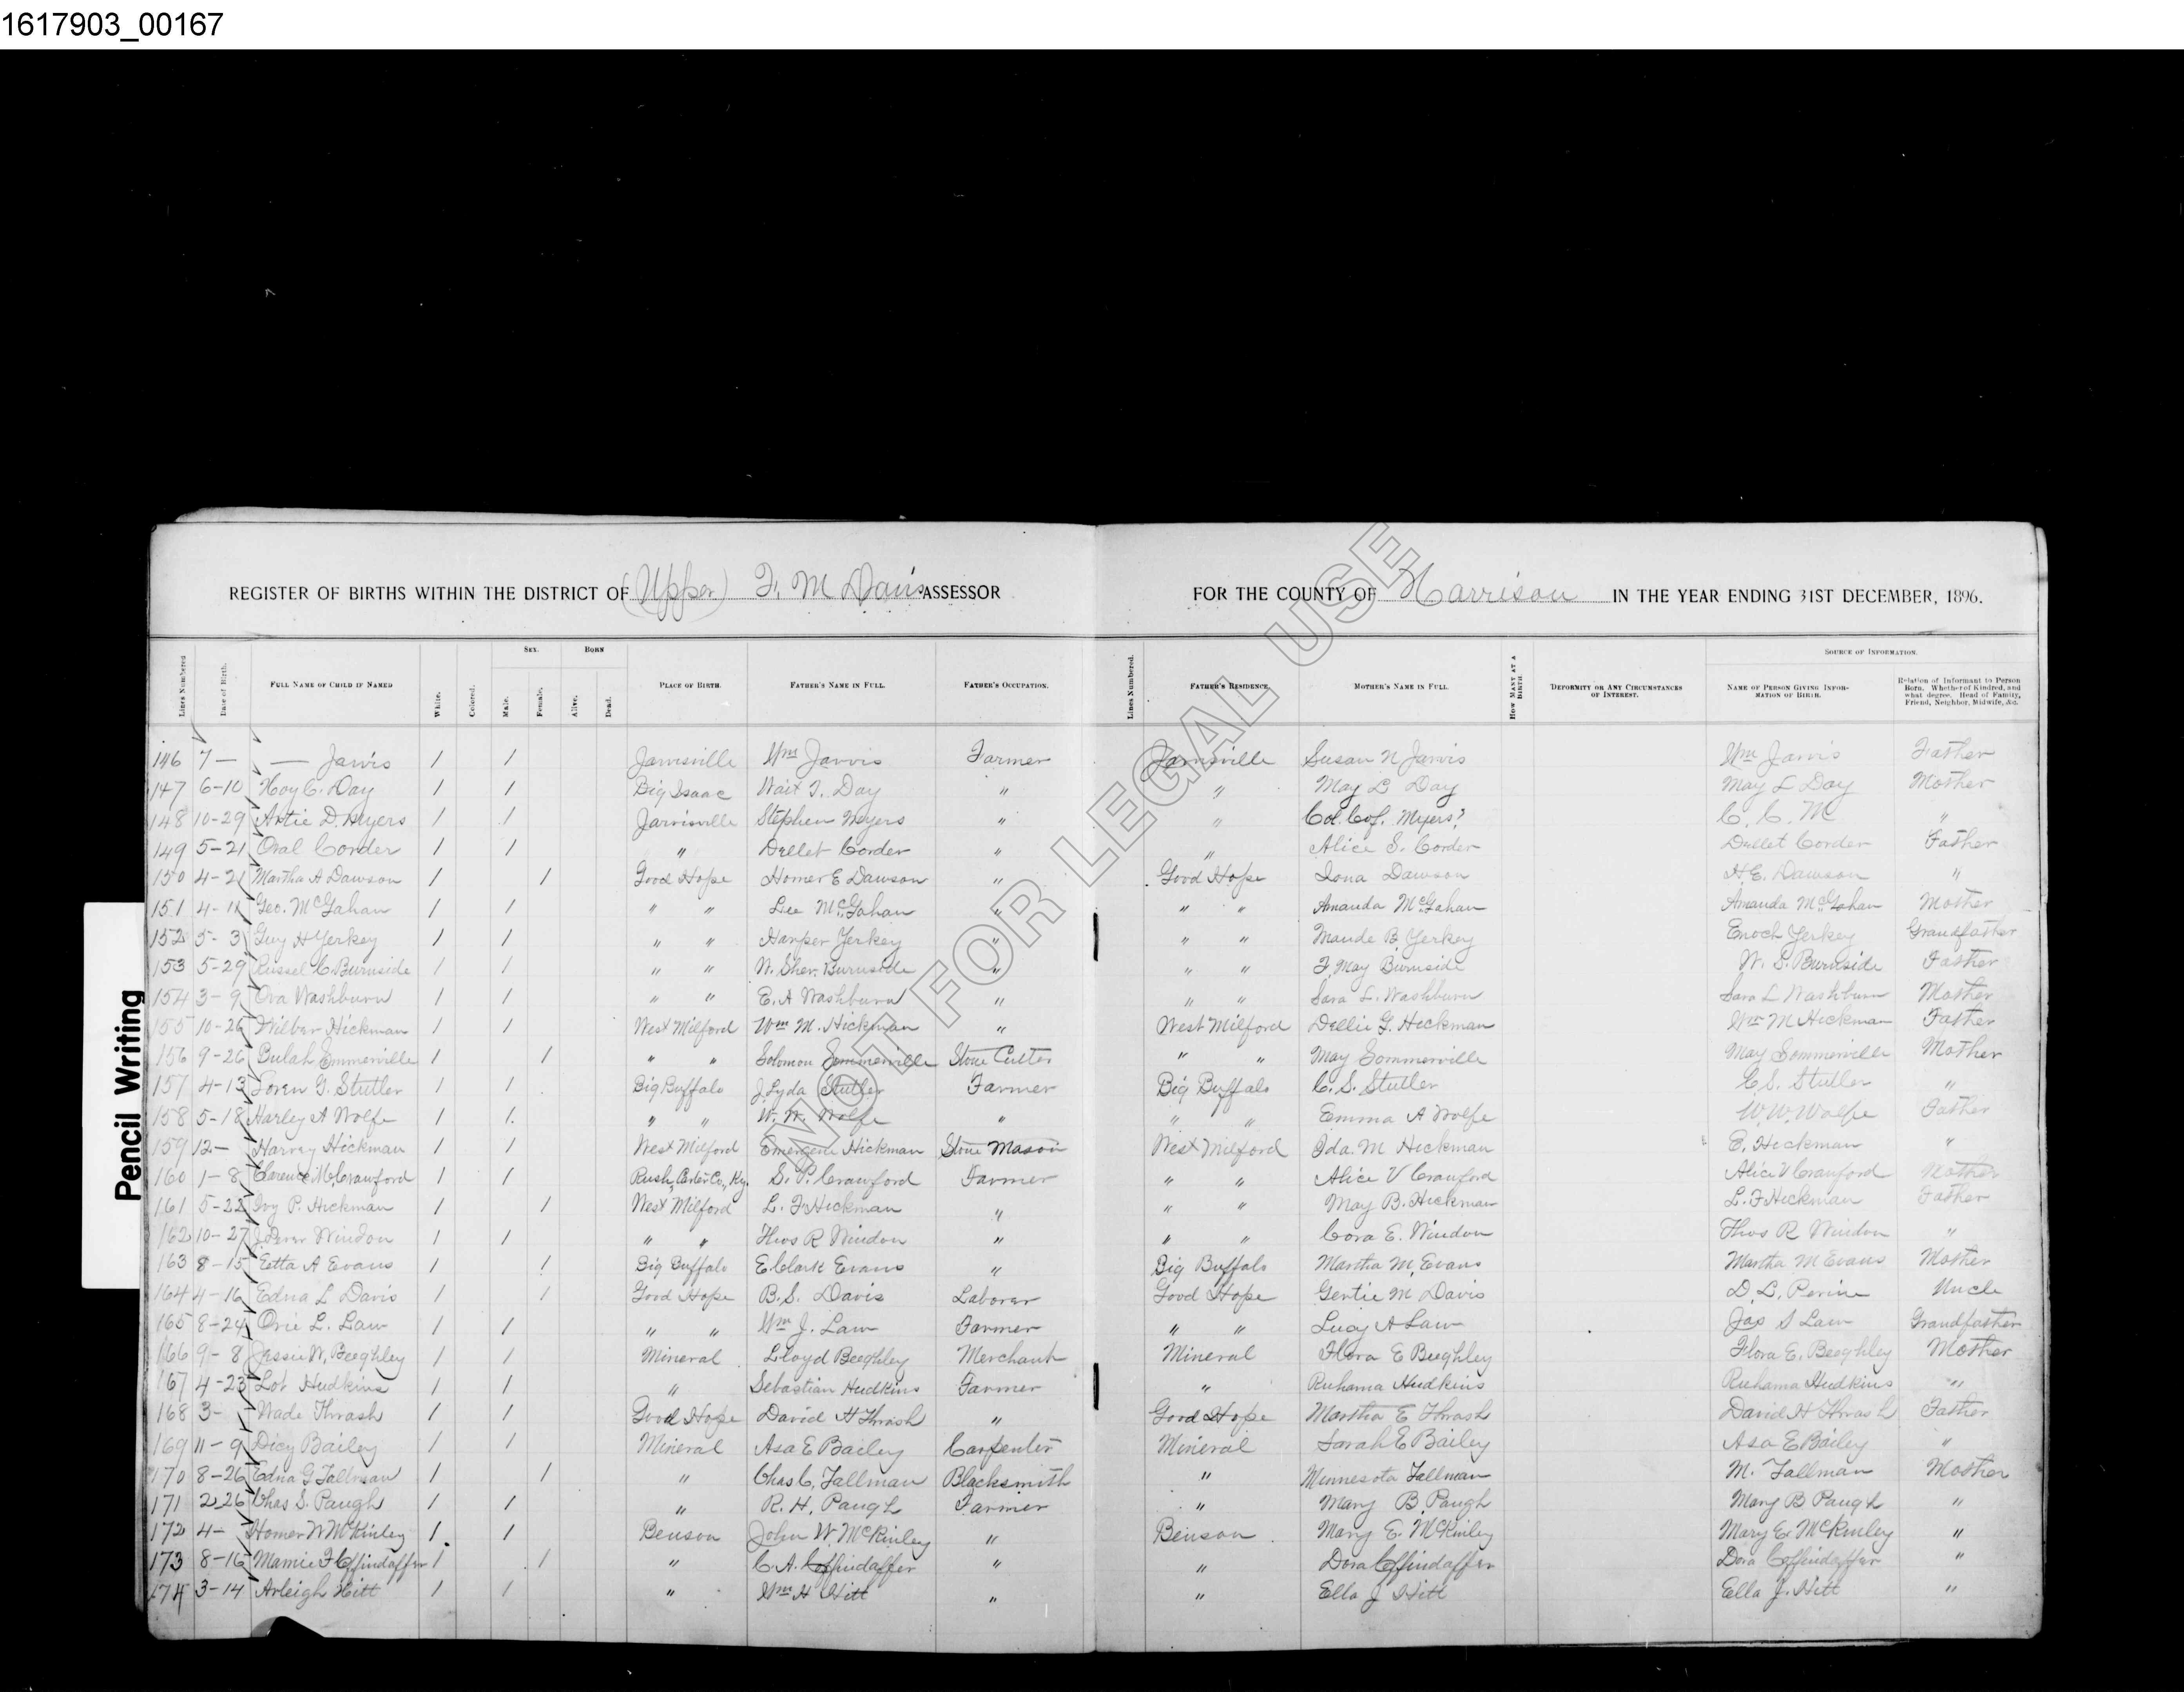 1617903_00167
REGISTER OF BIRTHS WITHIN THE DISTRICT OF (Upper) F. M Davis ASSESSOR FOR THE COUNTY OF Harrison IN THE YEAR ENDING 31ST DECEMBER, 1896.
Lines Numbered Date of Birth. FULL NAME OF CHILD IF NAMED White. Colored. SEX. Male. Female. BORN Alive. Dead. PLACE OF BIRTH. FATHER'S NAME IN FULL. FATHER'S OCCUPATION. Lines Numbered. FATHER'S RESIDENCE. MOTHER'S NAME IN FULL. HOW MANY AT A BIRTH. DEFORMITY OR ANY CIRCUMSTANCES OF INTEREST. SOURCE OF INFORMATION. NAME OF PERSON GIVING INFORMATION OF BIRTH. Relation of Informant to Person Born. Whether of Kindred, and what degree, Head of Family, Friend, Neighbor, Midwife, &c.
146 7 — — Jarvis / / Jarvisville Wm Jarvis Farmer Jarvisville Susan N Jarvis Wm Jarvis Father
147 6-10 Hoy C. Day / / Big Isaac Wait T. Day " " May L Day May L Day Mother
148 10-29 Artie D. Myers / / Jarvisville Stephen Myers " " Col. Cof. Myers? C. C. M "
149 5-21 Oval Corder / / " Dellet Corder " " Alice S. Corder Dellet Corder Father
150 4-21 Martha A Dawson / / Good Hope Homer E Dawson " Good Hope Iona Dawson H E. Dawson "
151 4-11 Geo. McGahan / / " " Lee McGahan " " " Amanda McGahan Amanda McGahan Mother
152 5-3 Guy H Yerkey / / " " Harper Yerkey " " " Maude B. Yerkey Enoch Yerkey Grandfather
153 5-29 Russel C. Burnside / / " " W. Sher. Burnside " " " F. May Burnside W. S. Burnside Father
154 3-9 Ora Washburn / / " " E. A Washburn " " " Sara L. Washburn Sara L Washburn Mother
155 10-26 Wilber Hickman / / West Milford Wm M. Hickman " West Milford Dellie G. Hickman Wm M Hickman Father
156 9-26 Bulah Sommerville / / " " Solomon Sommerville Stone Cutter " " May Sommerville May Sommerville Mother
157 4-13 Loren G. Stutler / / Big Buffalo J. Lyda Stutler Farmer Big Buffalo C. S. Stutler C. S. Stutler "
158 5-18 Harley A Wolfe / / " " W. W. Wolfe " " " Emma A Wolfe W. W. Wolfe Father
159 12— Harvey Hickman / / West Milford Emerson Hickman Stone Mason West Milford Ida. M Hickman E. Hickman "
160 1-8 Clarence M. Crawford / / Rush, Carter Co., Ky. S. P. Crawford Farmer " " Alice V Crawford Alice V Crawford Mother
161 5-22 Ivy P. Hickman / / West Milford L. F Hickman " " " May B. Hickman L. F Hickman Father
162 10-27 Windon / / " " Thos R Windon " " " Cora E. Windon Thos R Windon "
163 8-15 Etta A Evans / / Big Buffalo E. Clark Evans " Big Buffalo Martha M. Evans Martha M Evans Mother
164 4-16 Edna L Davis / / Good Hope B. S. Davis Laborer Good Hope Gertie M Davis D. L. Perine Uncle
165 8-24 Orie L. Law / / " " Wm J. Law Farmer " " Lucy A Law Jas S Law Grandfather
166 9-8 Jessie W. Beeghley / / Mineral Lloyd Beeghley Merchant Mineral Flora E Beeghley Flora E. Beeghley Mother
167 4-23 Lot Hudkins / / " Sebastian Hudkins Farmer " Ruhama Hudkins Ruhama Hudkins "
168 3- Wade Thrash / / Good Hope David H Thrash " Good Hope Martha E Thrash David H Thrash Father
169 11-9 Dicy Bailey / / Mineral Asa E Bailey Carpenter Mineral Sarah E Bailey Asa E Bailey "
170 8-26 Edna G Tallman / / " Chas C. Tallman Blacksmith " Minnesota Tallman M. Tallman Mother
171 2 26 Chas S. Paugh / / " R. H. Paugh Farmer " Mary B. Paugh Mary B Paugh "
172 4- Homer W McKinley / / Benson John W. McKinley " Benson Mary E. McKinley Mary E McKinley "
173 8-16 Mamie F Coffindaffer / / " C. A. Coffindaffer " " Dora Coffindaffer Dora Coffindaffer "
174 3-14 Arleigh Hitt / / " Wm H Hitt " " Ella J Hitt Ella J. Hitt "
Pencil Writing
NOT FOR LEGAL USE